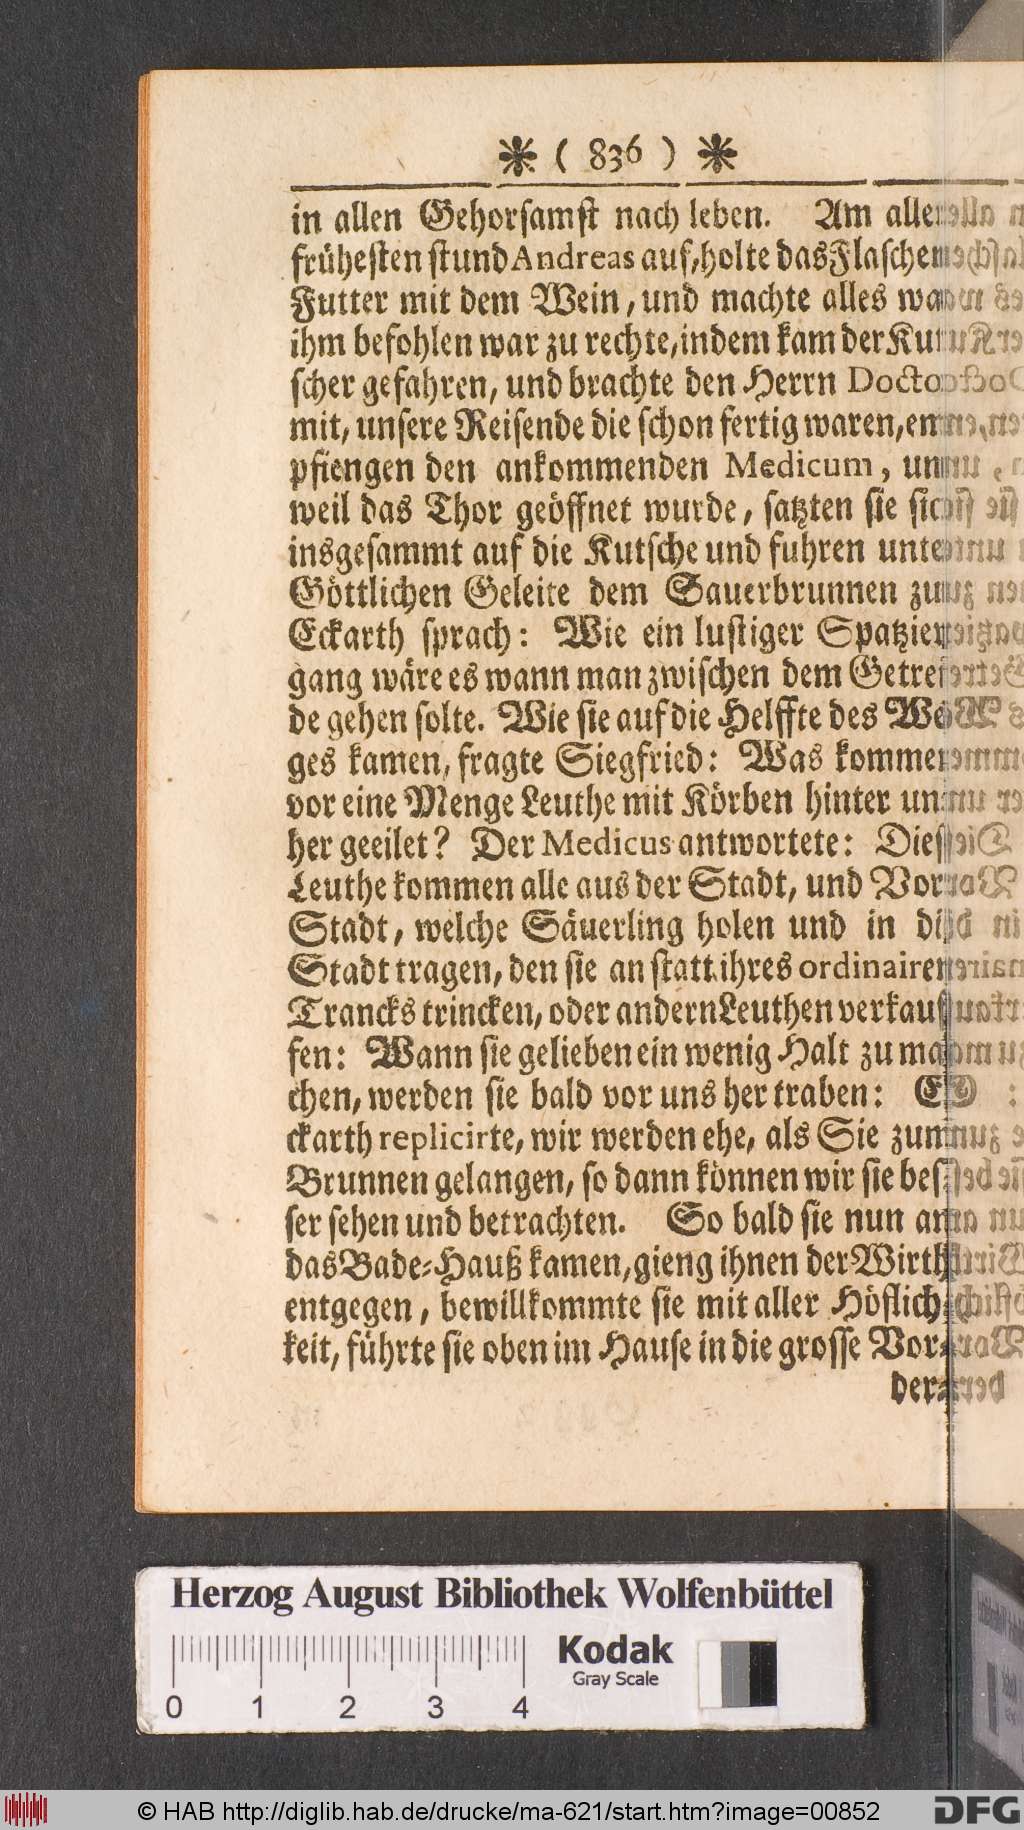 ( 836 )
in allen Gehorsamst nach leben. Am aller
frühesten stund Andreas auf, holte das Flaschen
Futter mit dem Wein, und machte alles was
ihm befohlen war zu rechte, indem kam der Kut
scher gefahren, und brachte den Herrn Doctor
mit, unsere Reisende die schon fertig waren, em
pfiengen den ankommenden Medicum, und
weil das Thor geöffnet wurde, satzten sie sich
insgesammt auf die Kutsche und fuhren unter
Göttlichen Geleite dem Sauerbrunnen zu.
Eckarth sprach: Wie ein lustiger Spatzier
gang wäre es wann man zwischen dem Getrei
de gehen solte. Wie sie auf die Helffte des We
ges kamen, fragte Siegfried: Was kommen
vor eine Menge Leuthe mit Körben hinter uns
her geeilet? Der Medicus antwortete: Diese
Leuthe kommen alle aus der Stadt, und Vor
Stadt, welche Säuerling holen und in die
Stadt tragen, den sie an statt ihres ordinairen
Trancks trincken, oder andern Leuthen verkauf
fen: Wann sie gelieben ein wenig Halt zu ma
chen, werden sie bald vor uns her traben: E
ckarth replicirte, wir werden ehe, als Sie zum
Brunnen gelangen, so dann können wir sie bes
ser sehen und betrachten. So bald sie nun an
das Bade-Hauß kamen, gieng ihnen der Wirth
entgegen, bewillkommte sie mit aller Höflich-
keit, führte sie oben im Hause in die grosse Vor-
der-
Herzog August Bibliothek Wolfenbüttel
Kodak
Gray Scale
0 1 2 3 4
© HAB http://diglib.hab.de/drucke/ma-621/start.htm?image=00852
DFG